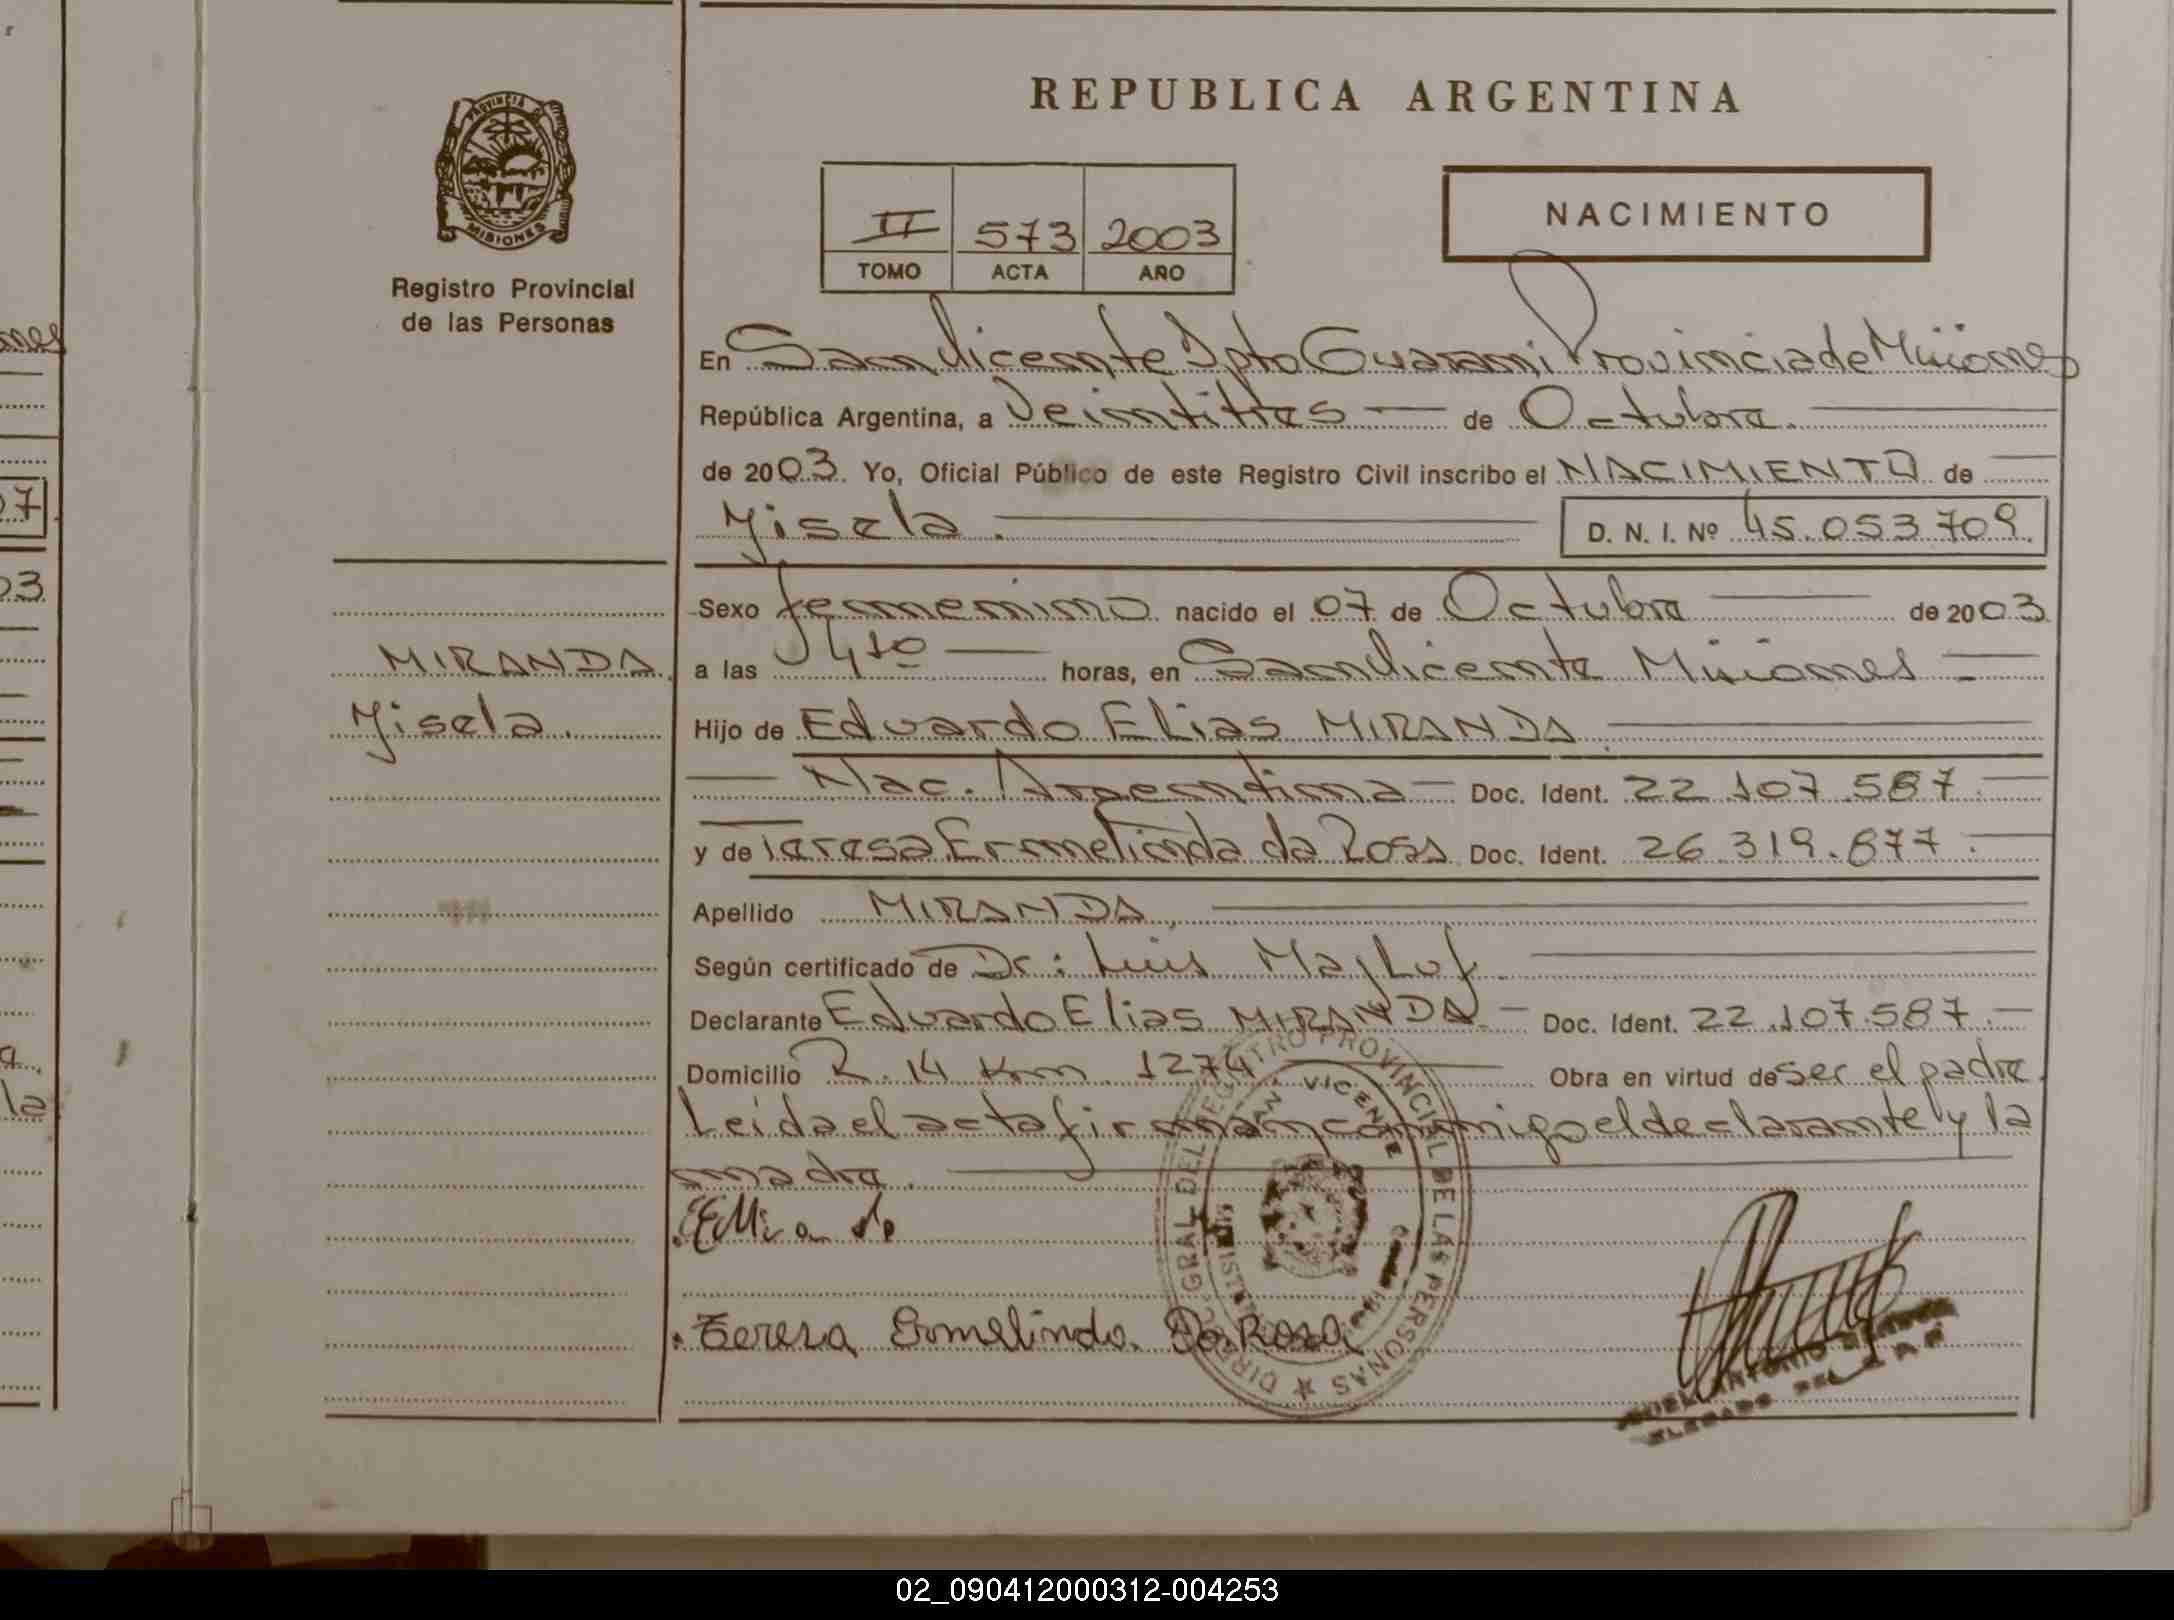 REPUBLICA ARGENTINA
PROVINCIA DE
MISIONES
Registro Provincial
de las Personas
II 573 2003
TOMO ACTA AÑO
NACIMIENTO
En San Vicente Dpto Guarani Provincia de Misiones
República Argentina, a Veintitres — de Octubre.
de 2003. Yo, Oficial Público de este Registro Civil inscribo el NACIMIENTO de
Yisela. D. N. I. Nº 45.053.709.
Sexo femenino nacido el 07 de Octubre de 2003
MIRANDA. a las 4 10 horas, en San Vicente Misiones —
Yisela. Hijo de Eduardo Elias MIRANDA.
— Nac. Argentina — Doc. Ident. 22.107.587.
y de Teresa Ermelinda da Rosa Doc. Ident. 26.319.877.
Apellido MIRANDA,
Según certificado de Dr: Luis Majluf.
Declarante Eduardo Elias MIRANDA — Doc. Ident. 22.107.587.—
Domicilio R. 14 Km. 1274 Obra en virtud de ser el padre.
Leída el acta firman conmigo el declarante y la
madre.
EMiranda
Teresa Ermelinda Da Rosa
GRAL DEL REGISTRO PROVINCIAL DE LAS PERSONAS
SAN VICENTE
02_090412000312-004253